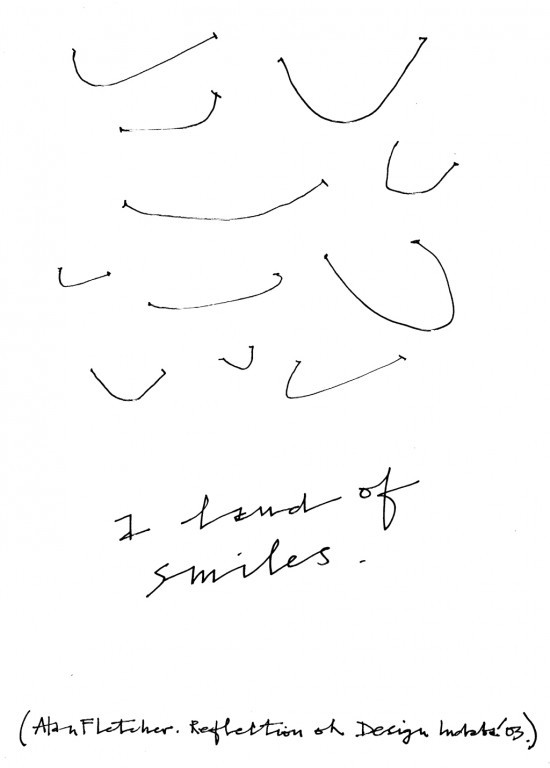 a land of
smiles.
(Alan Fletcher. Reflection on Design Indaba '03.)